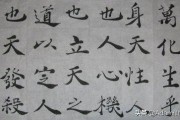 萬化生乎
身天性人
也人心機
也立天之
道以定人
也天發殺